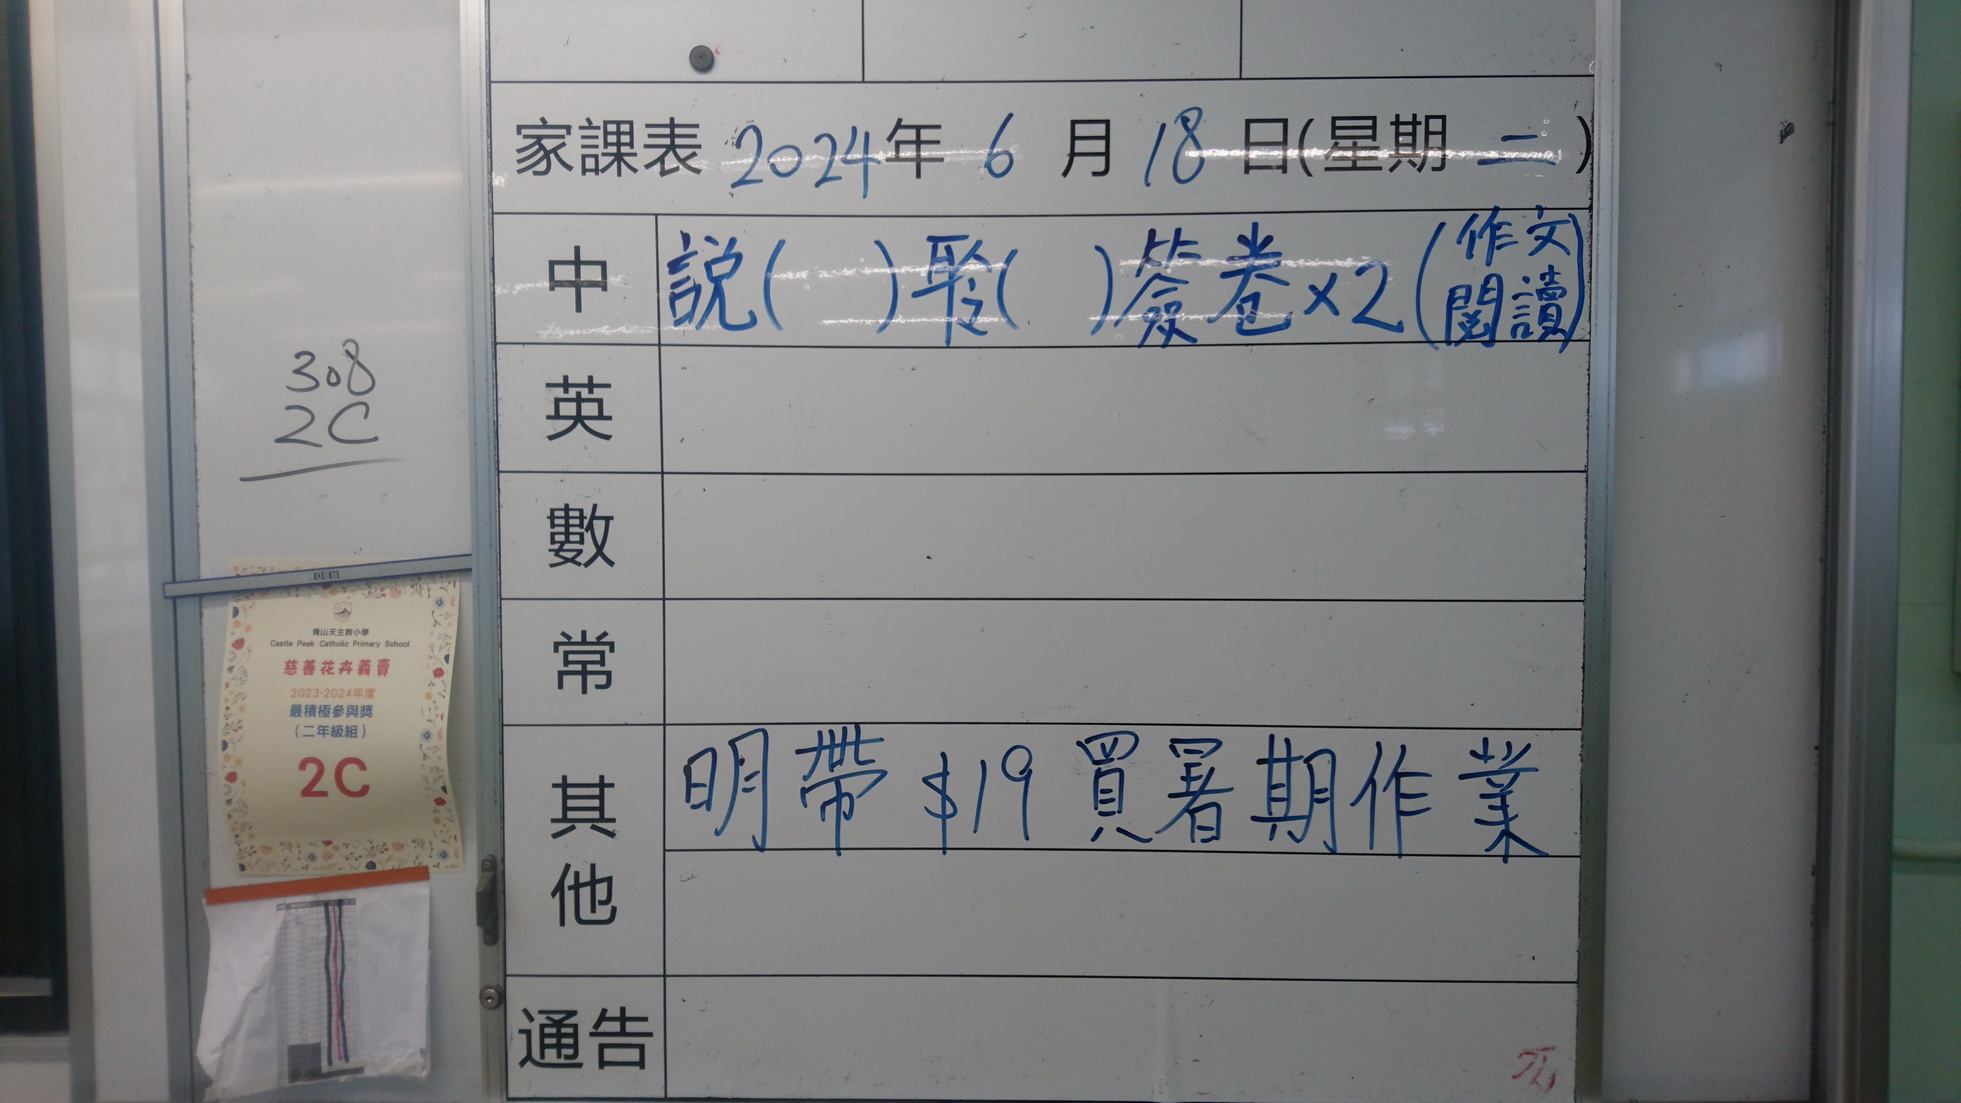 家課表 2024年 6 月 18 日(星期 二 )
中 説( ) 聆( ) 簽卷×2 (作文
閱讀)
英
數
常
其他 明帶 $19 買暑期作業
通告
308
2C
青山天主教小學
Castle Peak Catholic Primary School
慈善花卉義賣
2023-2024年度
最積極參與獎
(二年級組)
2C